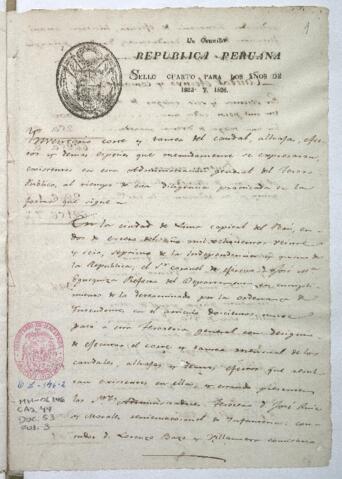 Un Quartillo
REPUBLICA PERUANA
SELLO CUARTO PARA LOS AÑOS DE
1825 Y 1826.
1
Ynventario corte y tanteo del caudal, alhajas, efec
tos y demas especies que menudamente se expresaran,
existentes en esta Administracion general del Tesoro
Publico, al tiempo de esta diligencia practicada en la
forma que sigue
En la ciudad de Lima capital del Perú, en
dos de enero del año mil ochocientos veinte
y seis, septimo de la independencia y quinto de
la Republica, el Sr. coronel de
Eguzquiza Prefecto del Departamento, en cumpli
miento de lo determinado por la ordenanza de
Intendentes en el articulo doscientos
paso a esta Tesoreria general con designio
de efectuar el corte y tanteo mensual de los
caudales, alhajas y demas efectos que
existentes en ella, y estando presentes
los Sres. Administradores Tesorero D. José Ruiz
y Morales
D. Lorenzo Bazo y Villanueva
O.L. 146-2
MH-OL 146
CAJ. 44
DOC. 53
FOL. 3